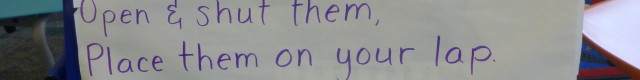 Open & shut them,
Place them on your lap.